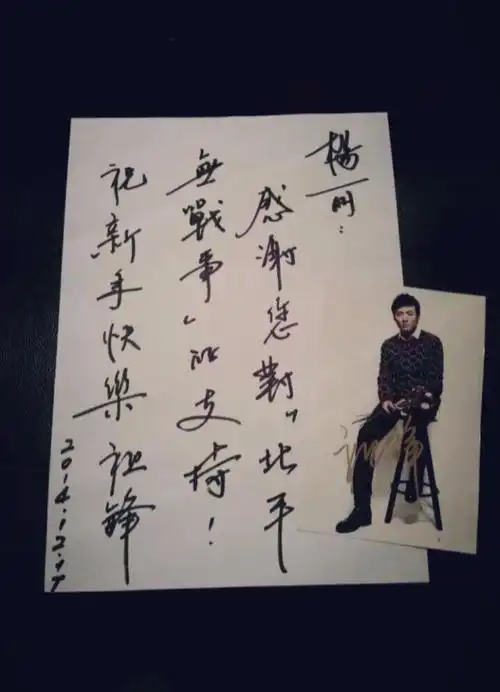 楊一
感謝您對"北平
無戰事"的支持!
祝新年快樂 祖鋒
2014.12.
祖鋒